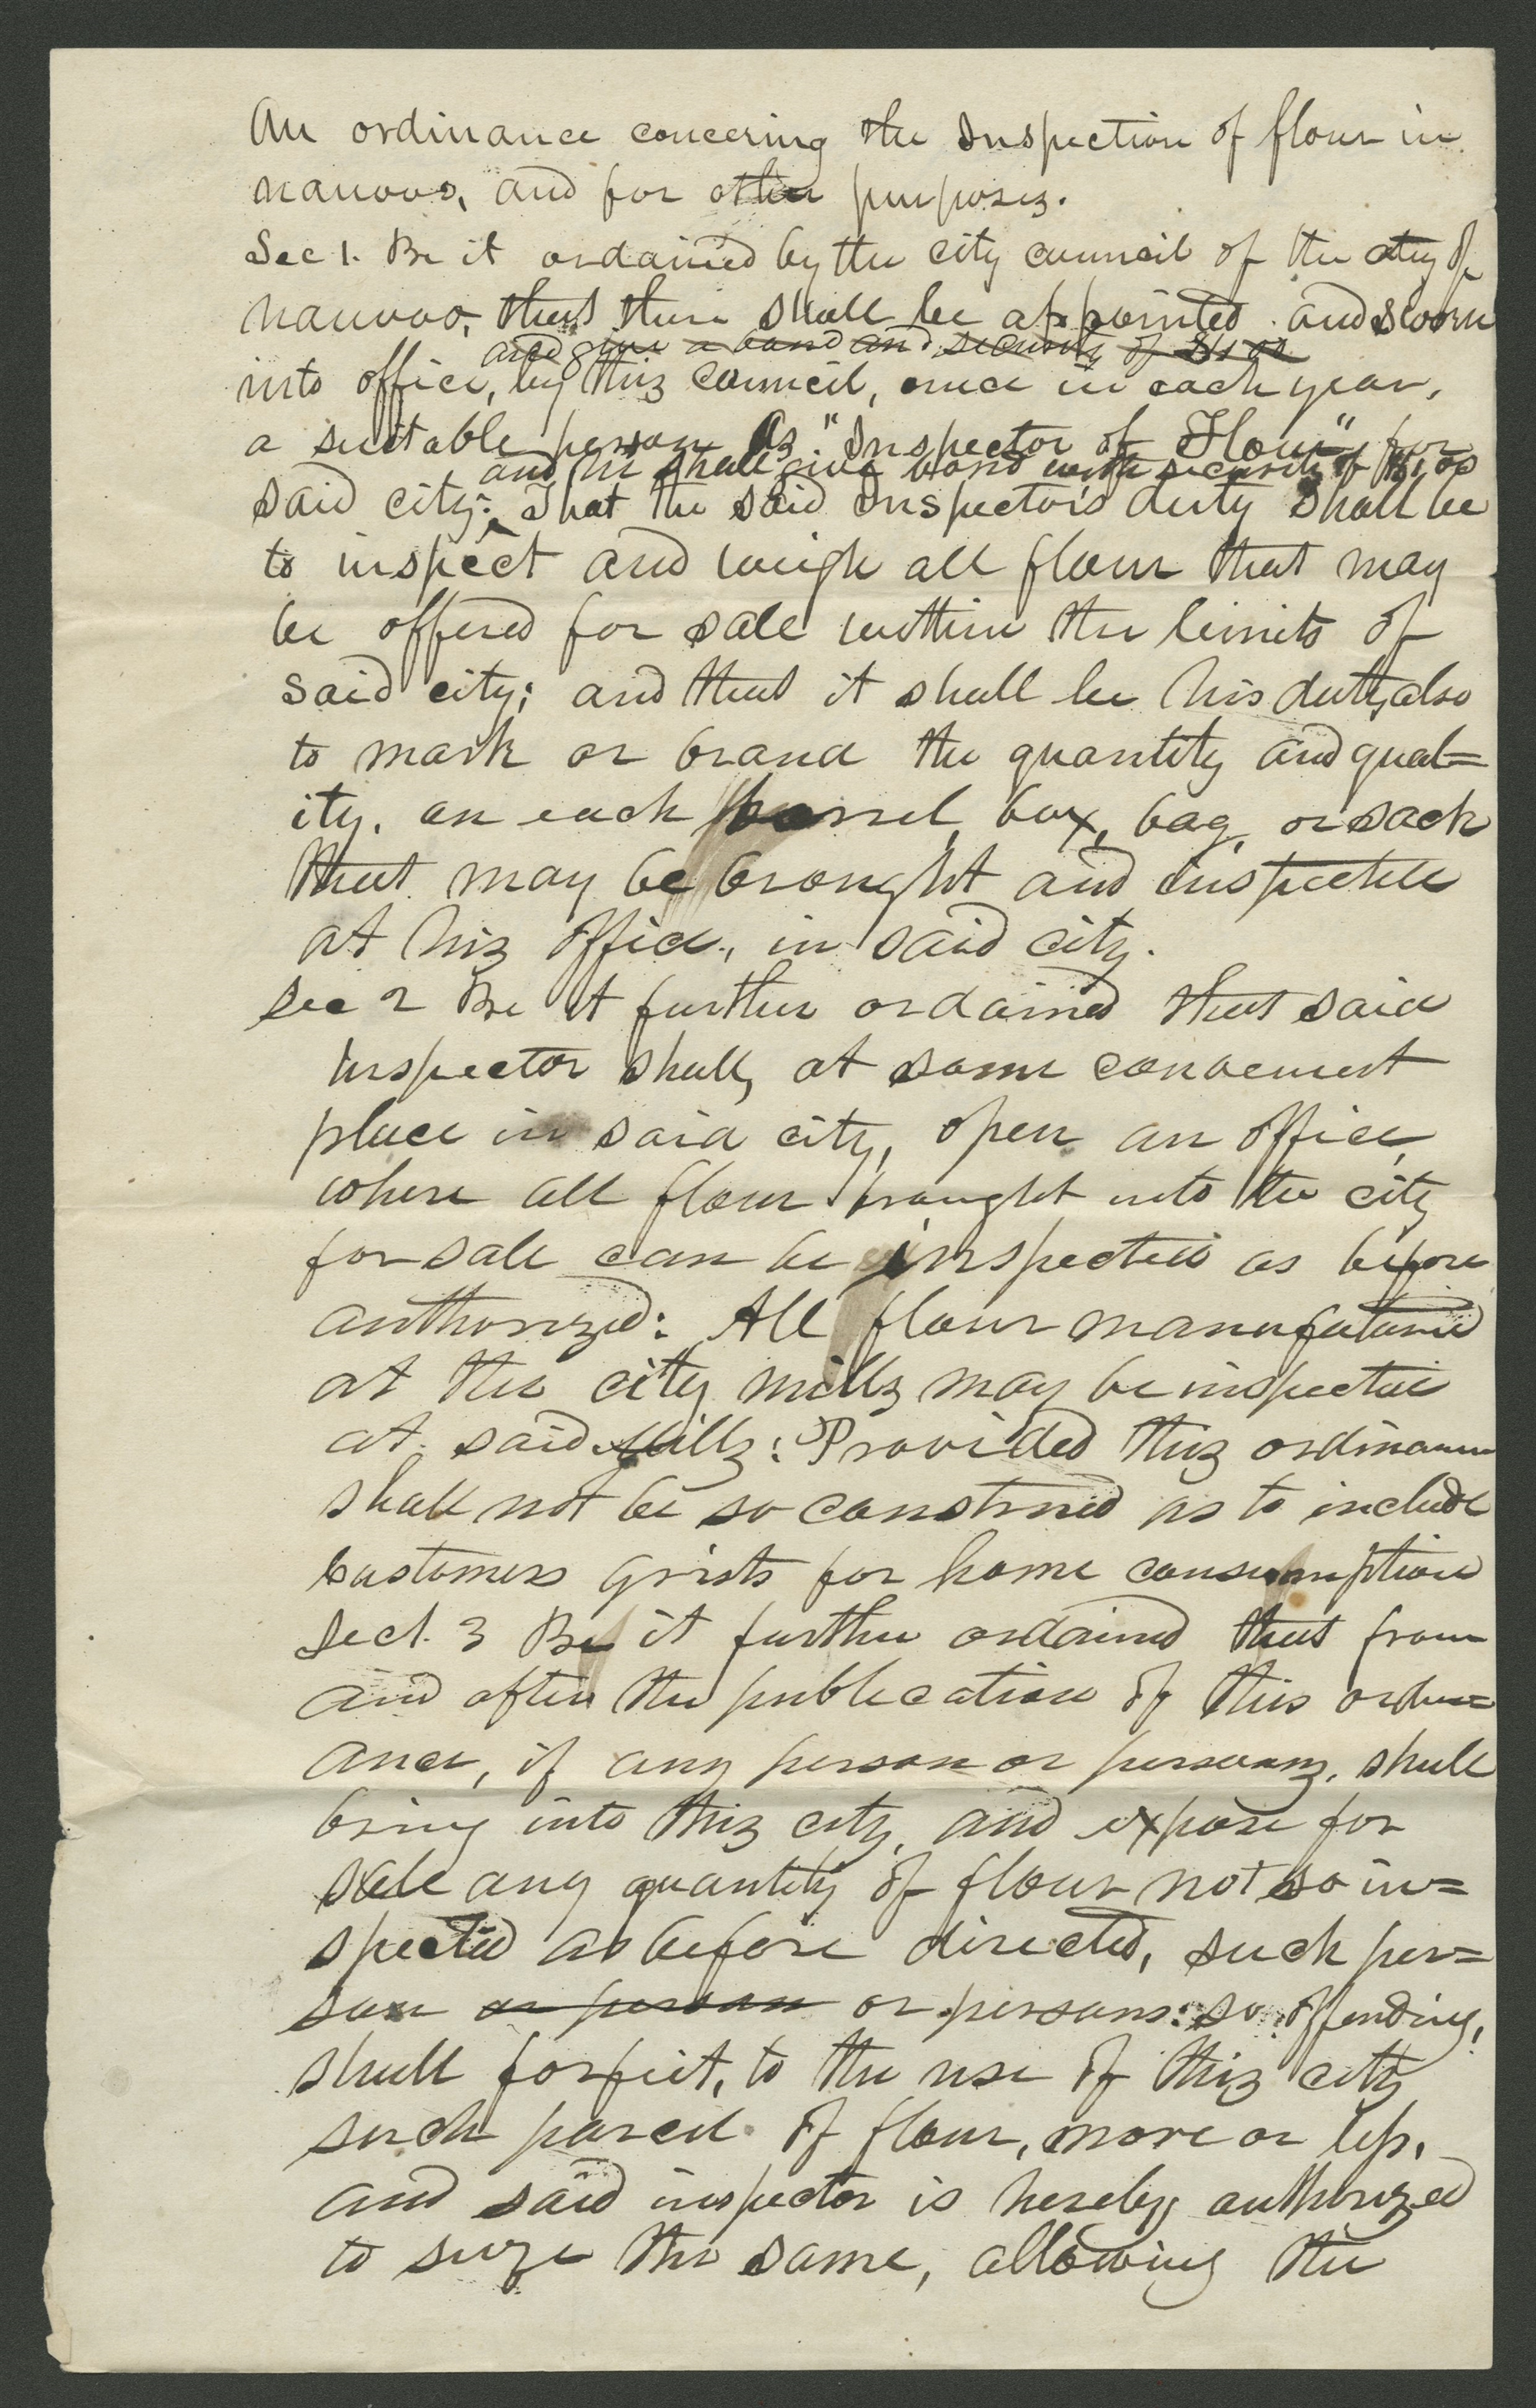 An ordinance concering the Inspection of flour in
nauvoo, and for other purposes.
Sec 1. Be it ordained by the city council of the city of
nauvoo, that there shall be appointed and sworn
and give a bond and security of $
into office, by this council, once in each year,
a suitable person As "Inspector of Flour" for
and he shall give bond with security of
said city: That the said Inspector's duty shall be
to inspect and weigh all flour that may
be offered for sale within the limits of
said city; and that it shall be his duty, also
to mark or brand the quantity and qual=
ity. on each barrel, box, bag, or sack
that may be brought and inspected
at his office, in said city.
Sec 2 Be it further ordained that said
inspector shall, at some convenient
place in said city, open an office,
where all flour brought into the city
for sale can be inspected as before
authorized: All flour manufatured
at the city mills may be inspected
at said Mills: Provided this ordinance
shall not be so construed as to include
customers grists for home consumption
Sect. 3 Be it further ordained that from
and after the publication of this ordin=
ance, if any person or persons, shall
bring into this city, and expose for
sale any quantity of flour not so in=
spected as before directed, such per=
son or person or persons: so offending,
shall forfeit, to the use of this city
such parcel of flour, more or less,
and said inspector is hereby authorized
to seize the same, allowing the